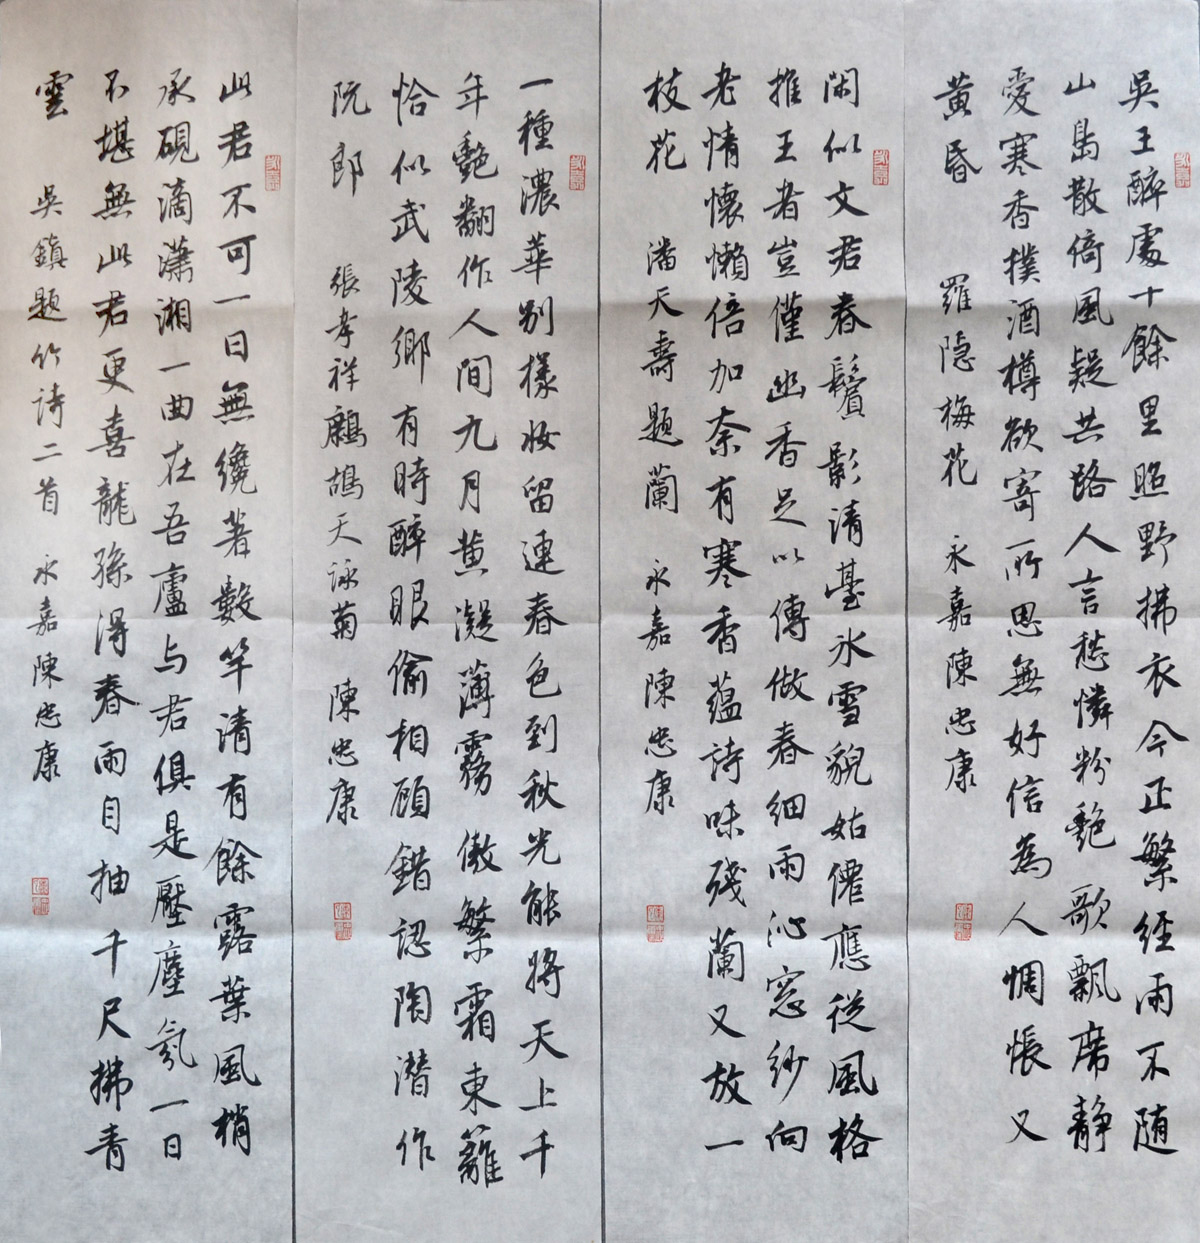 吳王醉處十餘里照野拂衣今正繁經雨不随
山鳥散倚風疑共路人言愁憐粉艷飄歌席靜
愛寒香撲酒樽欲寄所思無好信為人惆悵又
黄昏 羅隐梅花 永嘉陳忠康
閑似文君春鬢影清臺冰雪貌姑僊應従風格
推王者豈僅幽香足以傳做春細雨沁窓紗向
老情懷懶倍加奈有寒香蕴詩味殘蘭又放一
枝花 潘天壽題蘭 永嘉陳忠康
一種濃華别樣妝留連春色到秋光能將天上千
年艷翻作人間九月黄凝薄霧傲繁霜東籬
恰似武陵鄉有時醉眼偷相顧錯認陶潜作
阮郎 張孝祥鷓鴣天詠菊 陳忠康
此君不可一日無纔著數竿清有餘露葉風梢
承硯滴潇湘一曲在吾廬与君俱是壓塵氛一日
不堪無此君更喜龍孫得春雨自抽千尺拂青
雲 吳鎮題竹詩二首 永嘉陳忠康